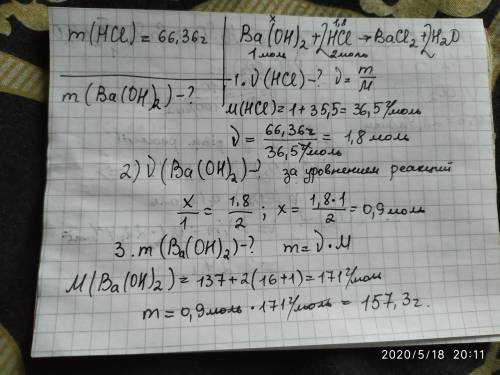 m(HCl) = 66,36г
m(Ba(OH)₂)-?
x 1,8
Ba(OH)₂ + 2HCl → BaCl₂ + 2H₂O
1 моль 2 моль
1. ν(HCl)-? ν = m/M
M(HCl) = 1 + 35,5 = 36,5 г/моль
ν = 66,36г / 36,5 г/моль = 1,8 моль
2) ν(Ba(OH)₂)-? за уровнением реакций
x/1 = 1,8/2 ; x = 1,8·1/2 = 0,9 моль
3. m(Ba(OH)₂)-? m = ν·M
M(Ba(OH)₂) = 137 + 2(16+1) = 171 г/моль
m = 0,9 моль · 171 г/моль = 157,3г.
2020/5/18 20:11